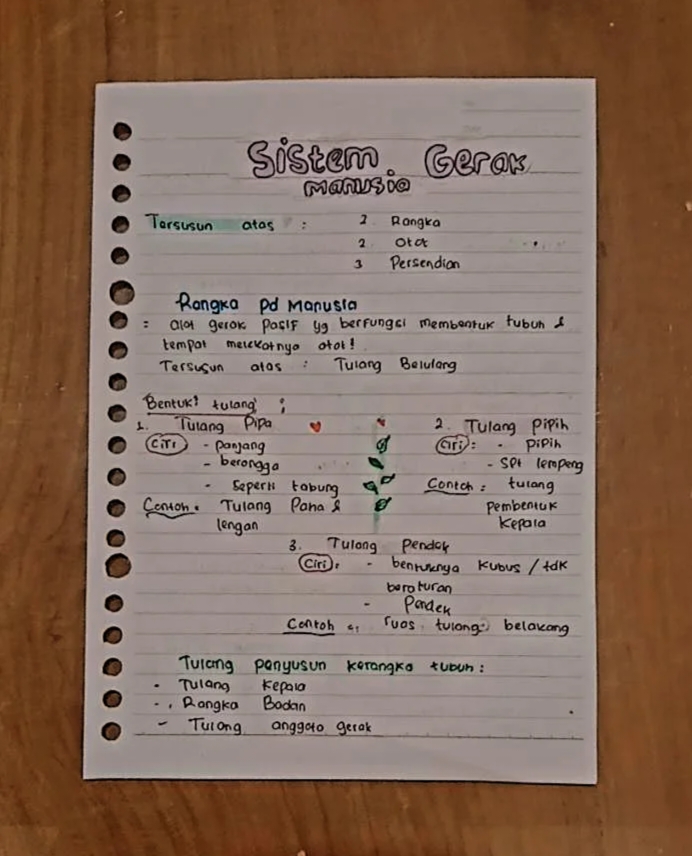 Sistem Gerak
Manusia
Tersusun atas : 1 Rangka
2 Otot
3 Persendian
Rangka Pd Manusia
= alat gerak pasif yg berfungsi membentuk tubuh &
tempat melekatnya otot!
Tersusun atas : Tulang Belulang
Bentuk² tulang :
1. Tulang Pipa
Ciri - panjang
- berongga
- Seperti tabung
Contoh : Tulang Paha &
lengan
2. Tulang Pipih
Ciri : - Pipih
- SPt lempeng
Contoh : tulang
pembentuk
Kepala
3. Tulang Pendek
Ciri : - bentuknya Kubus / tdk
beraturan
- Pendek
Contoh : ruas tulang² belakang
Tulang penyusun kerangka tubuh :
- Tulang Kepala
- Rangka Badan
- Tulang anggota gerak